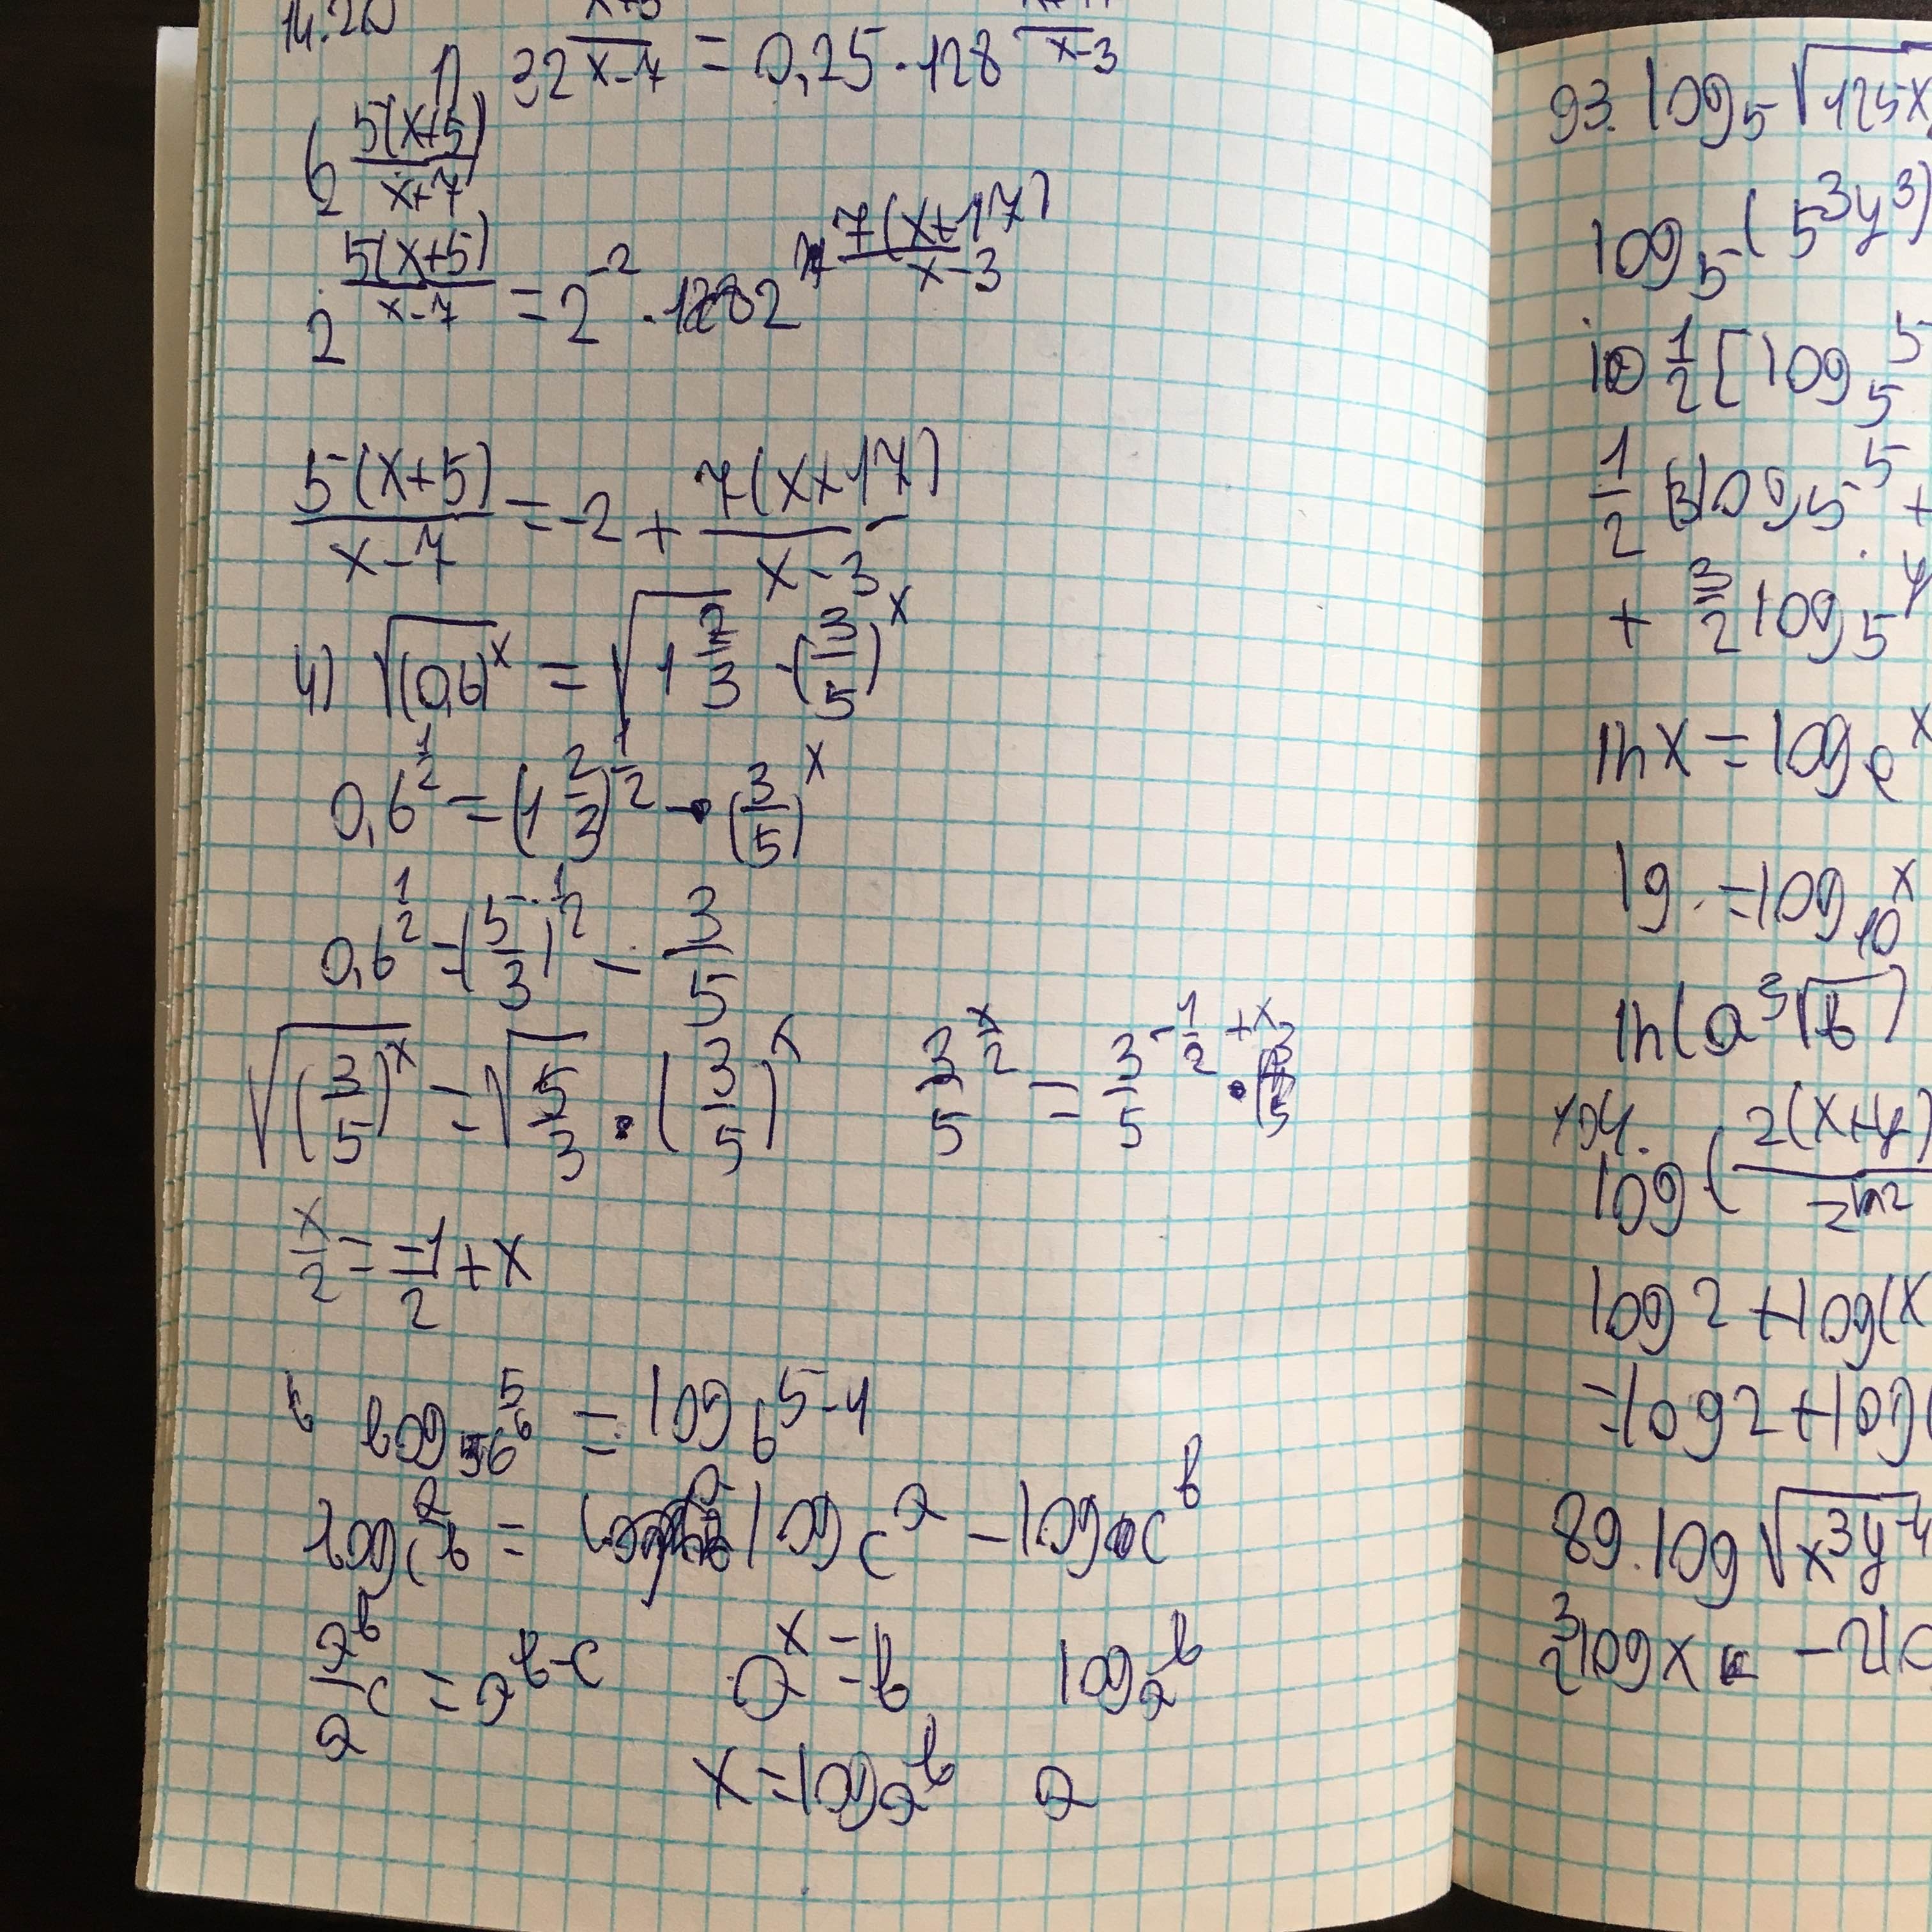 14.20
1) 32^(x+5)/(x-7) = 0,25 · 128^(x+17)/(x-3)
2^(5(x+5))/(x+7)
2^(5(x+5))/(x-7) = 2^-2 · 2^(7(x+17))/(x-3)
5(x+5)/(x-7) = -2 + 7(x+17)/(x-3)
4) √(0,6)^x = √(1 2/3) · (3/5)^x
0,6^(1/2) = (1 2/3)^(1/2) · (3/5)^x
0,6^(1/2) = (5/3)^(1/2) - 3/5
√(3/5)^x = √(5/3) · (3/5)^x 3/5^(x/2) = 3/5^(-1/2 + x) ·
x/2 = -1/2 + x
= log_6 5-4
log_c a/b = log_c a - log_c b
a^b/a^c = a^(b-c) a^x = b log_a b
x = log_a b a
93. log_5 √125x
log_5 (5^3 y^3)
1/2 [log_5 5
1/2 (3 log_5 5 +
+ 3/2 log_5 y
ln x = log_e x
lg = log_10 x
ln(a ³√b)
104.
log (2(x+y)
log 2 + log(x
= log 2 + log(
89. log √x^3 y^-4
3/2 log x - 2 lo